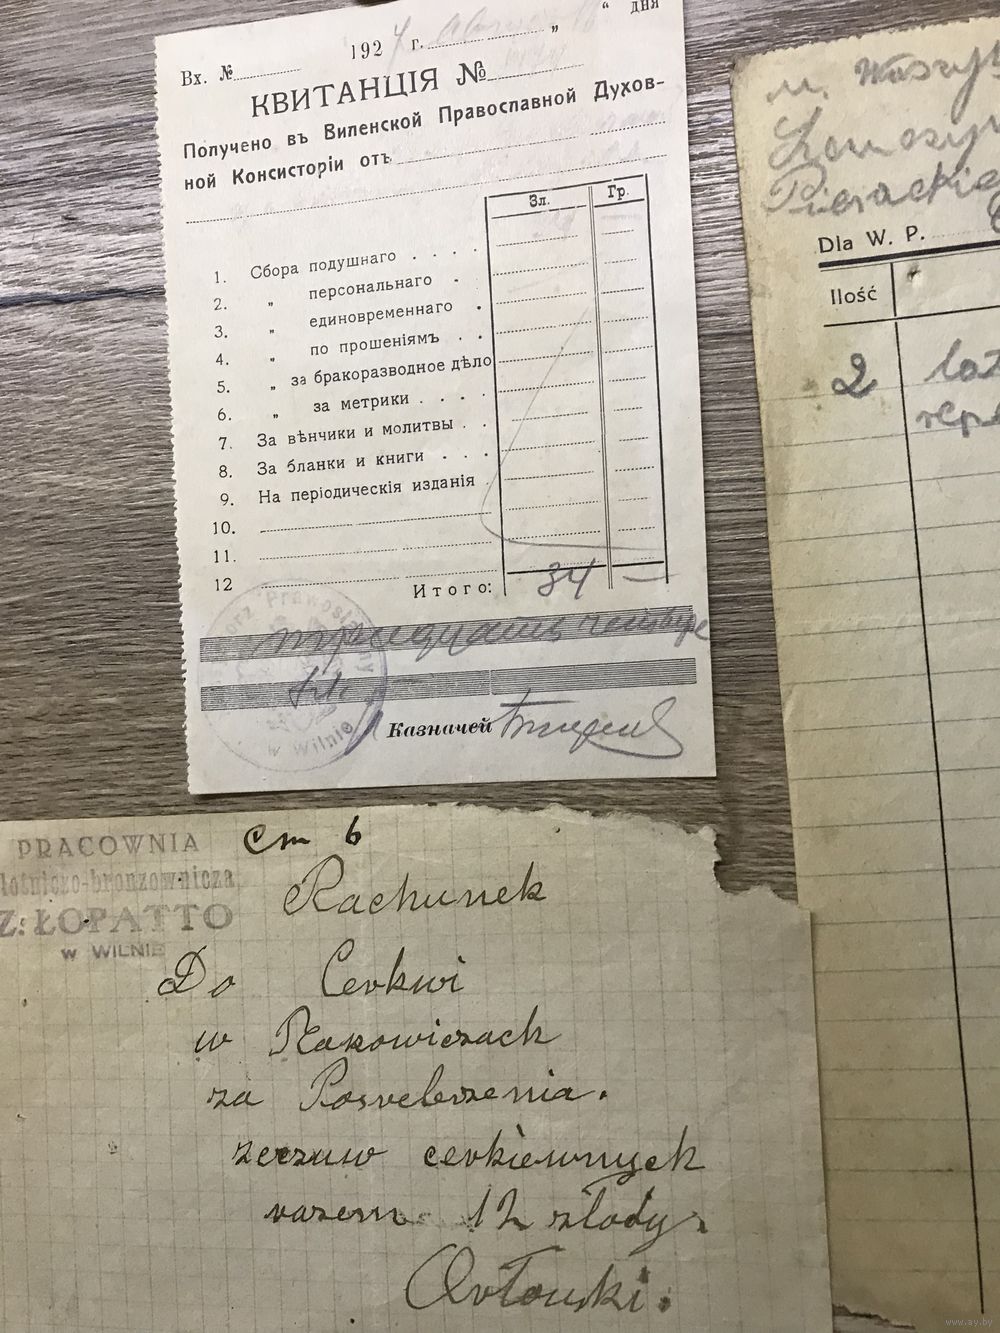 “ ДНЯ
Вх. № 192 г. „
КВИТАНЦІЯ №
Получено въ Виленской Православной Духов-
ной Консисторіи отъ
Зл. Гр.
1. Сбора подушнаго . . . .
2. „ персональнаго .
3. „ единовременнаго .
4. „ по прошеніямъ . .
5. „ за бракоразводное дѣло
6. „ за метрики . . . .
7. За вѣнчики и молитвы . .
8. За бланки и книги . . .
9. На періодическія изданія
10.
11.
12
Итого: 34 —
тридцать четыре
Prawosławny
w Wilnie
Казначей
м.
Dla W. P.
Ilość
2
PRACOWNIA
złotniczo-bronzownicza
Z. ŁOPATTO
w WILNIE
Ст 6
Rachunek
Do Cerkwi
w Rakowiczach
za Posrebrzenia.
rzeczuw cerkiewnych
razem 12 złody.
Orłowski.
www.ay.by